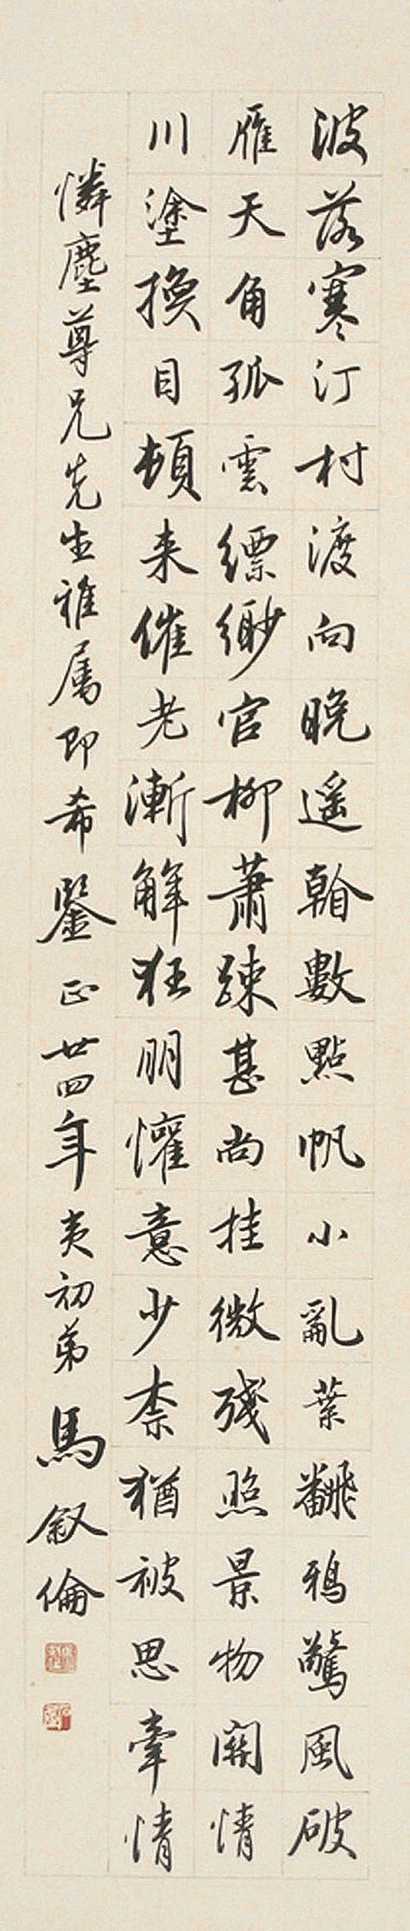 波落寒汀村渡向晚遥看數點帆小亂葉飜鴉驚風破
雁天角孤雲縹緲官柳蕭踈甚尚挂微殘照景物關情
川塗換目頓来催老漸解狂朋懽意少柰猶被思牽情
憐塵尊兄先生雅属即希鑒正廿四年夷初弟馬叙倫